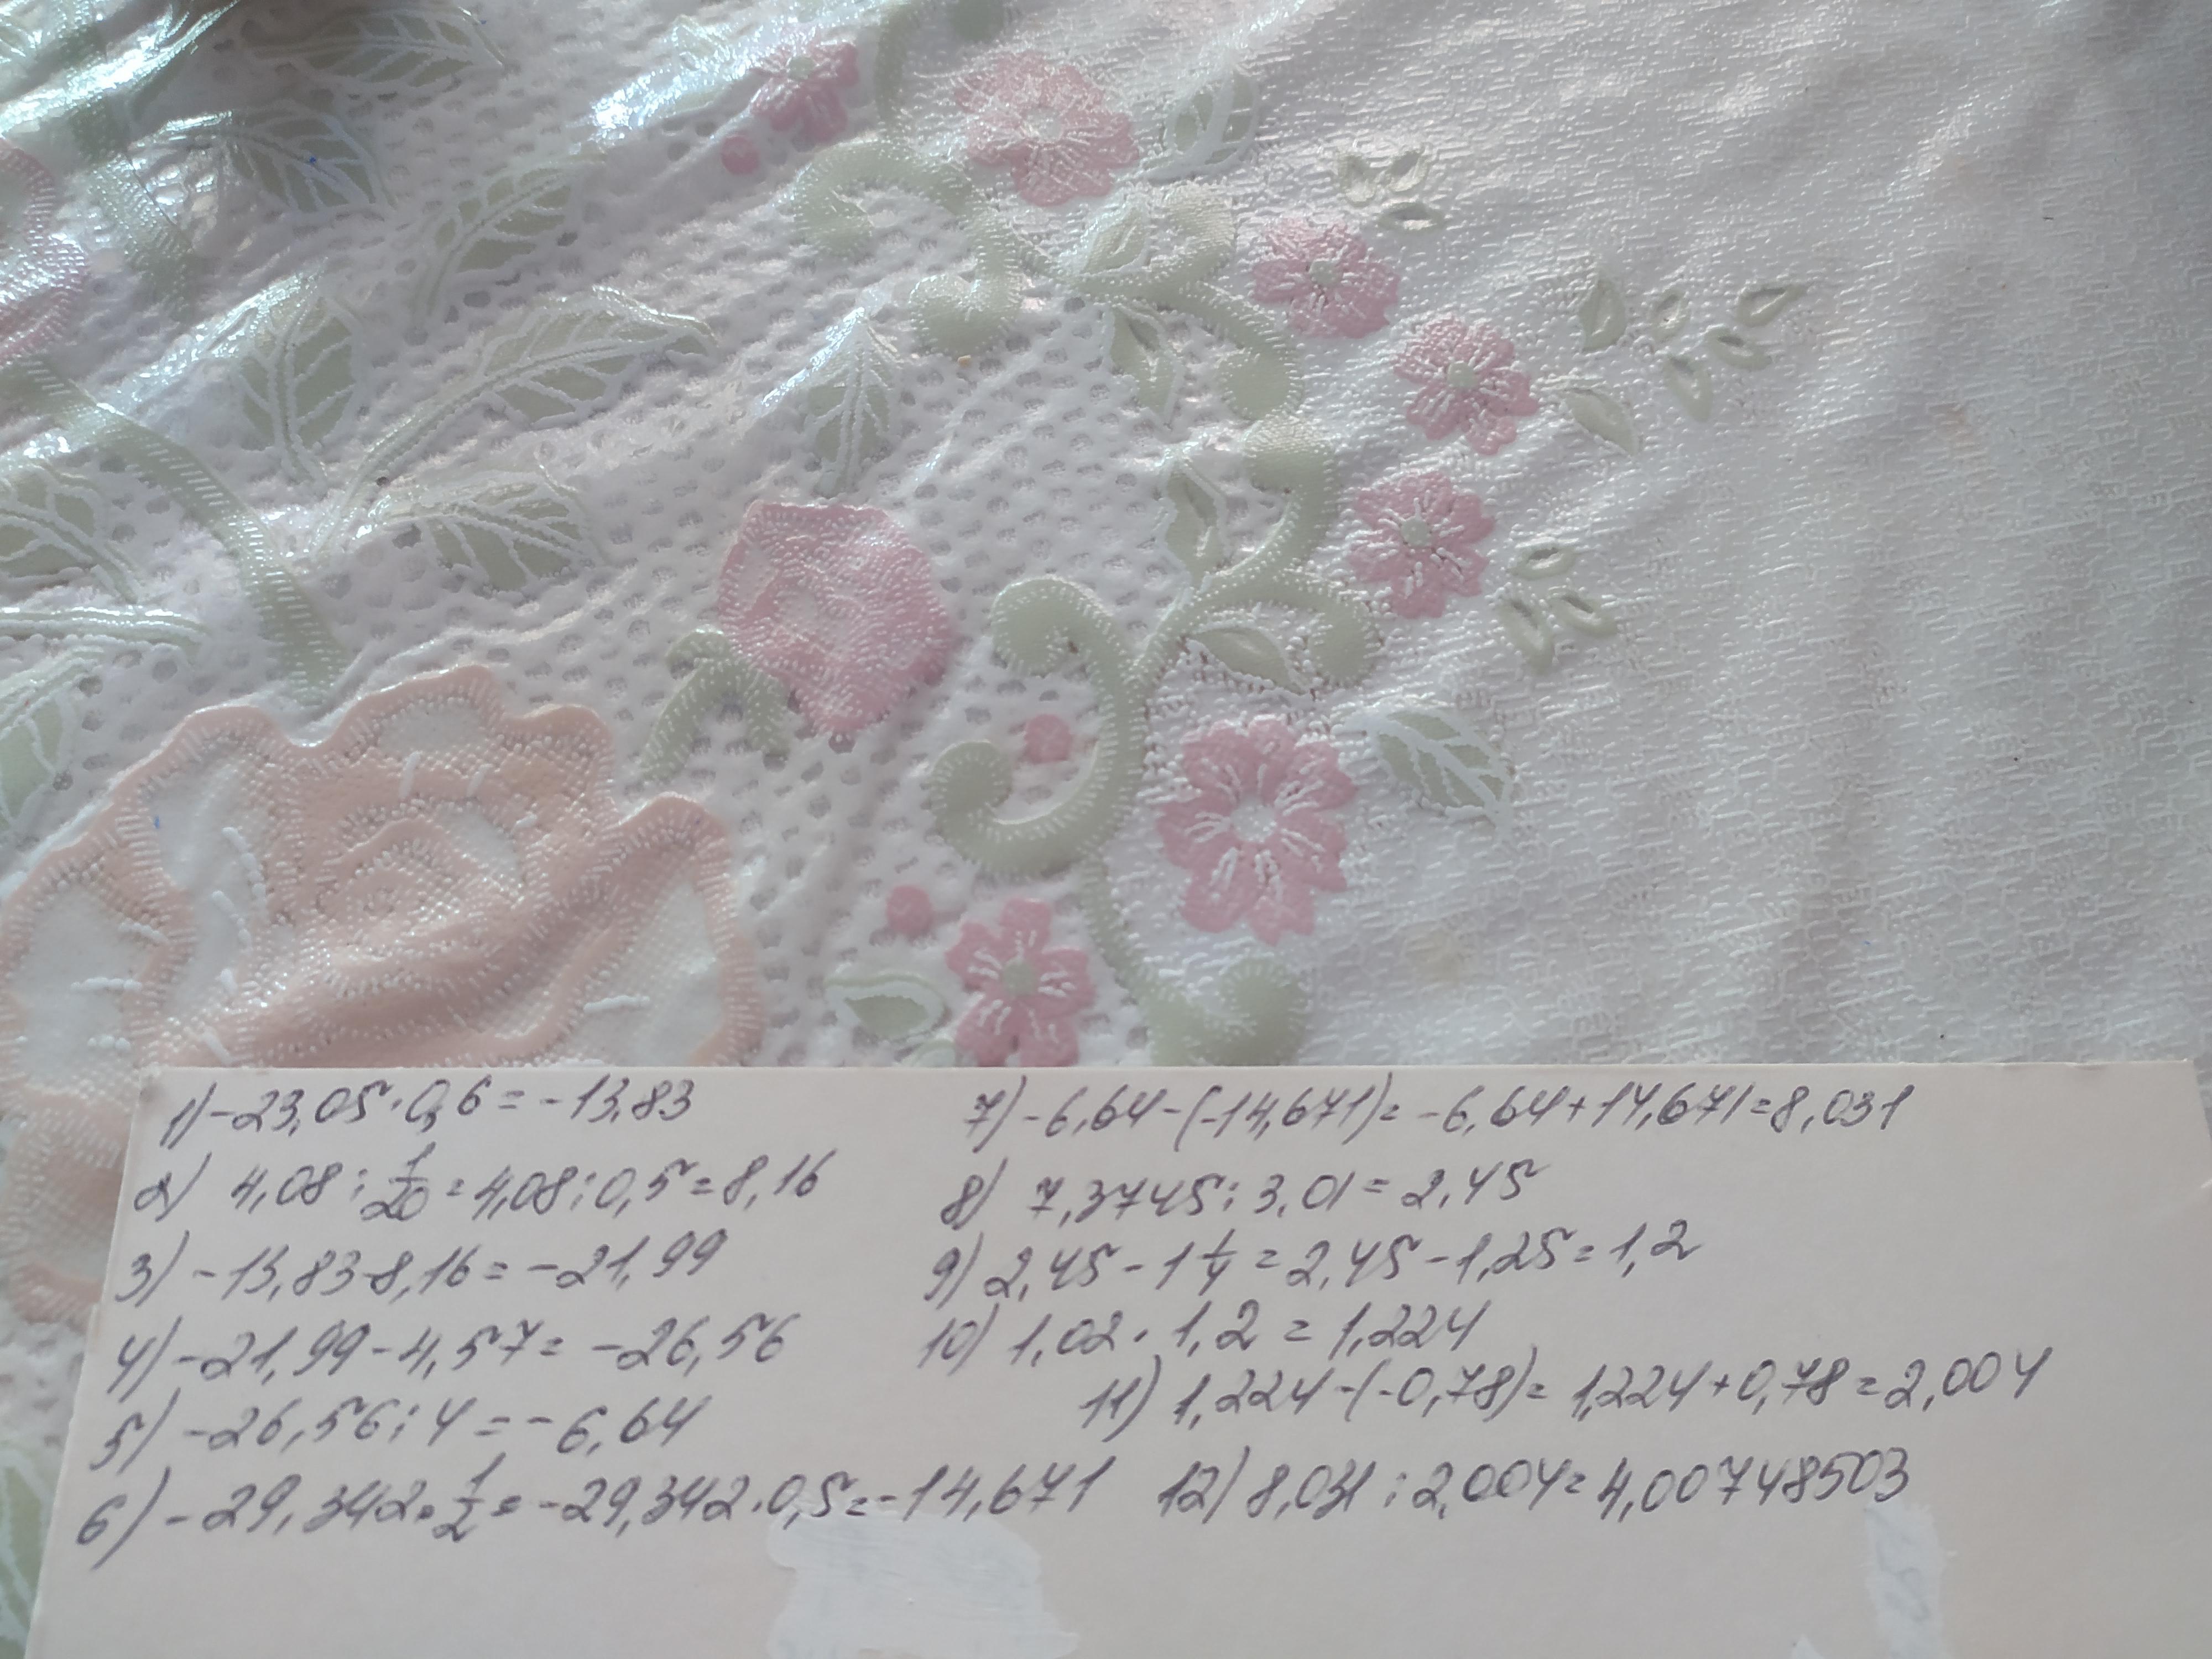 1) -23,05·0,6=-13,83
2) 4,08:1/20=4,08:0,5=8,16
3) -13,83-8,16=-21,99
4) -21,99-4,57=-26,56
5) -26,56:4=-6,64
6) -29,342·1/2=-29,342·0,5=-14,671
7) -6,64-(-14,671)=-6,64+14,671=8,031
8) 7,3745:3,01=2,45
9) 2,45-1 1/4=2,45-1,25=1,2
10) 1,02·1,2=1,224
11) 1,224-(-0,78)=1,224+0,78=2,004
12) 8,031:2,004=4,007748503